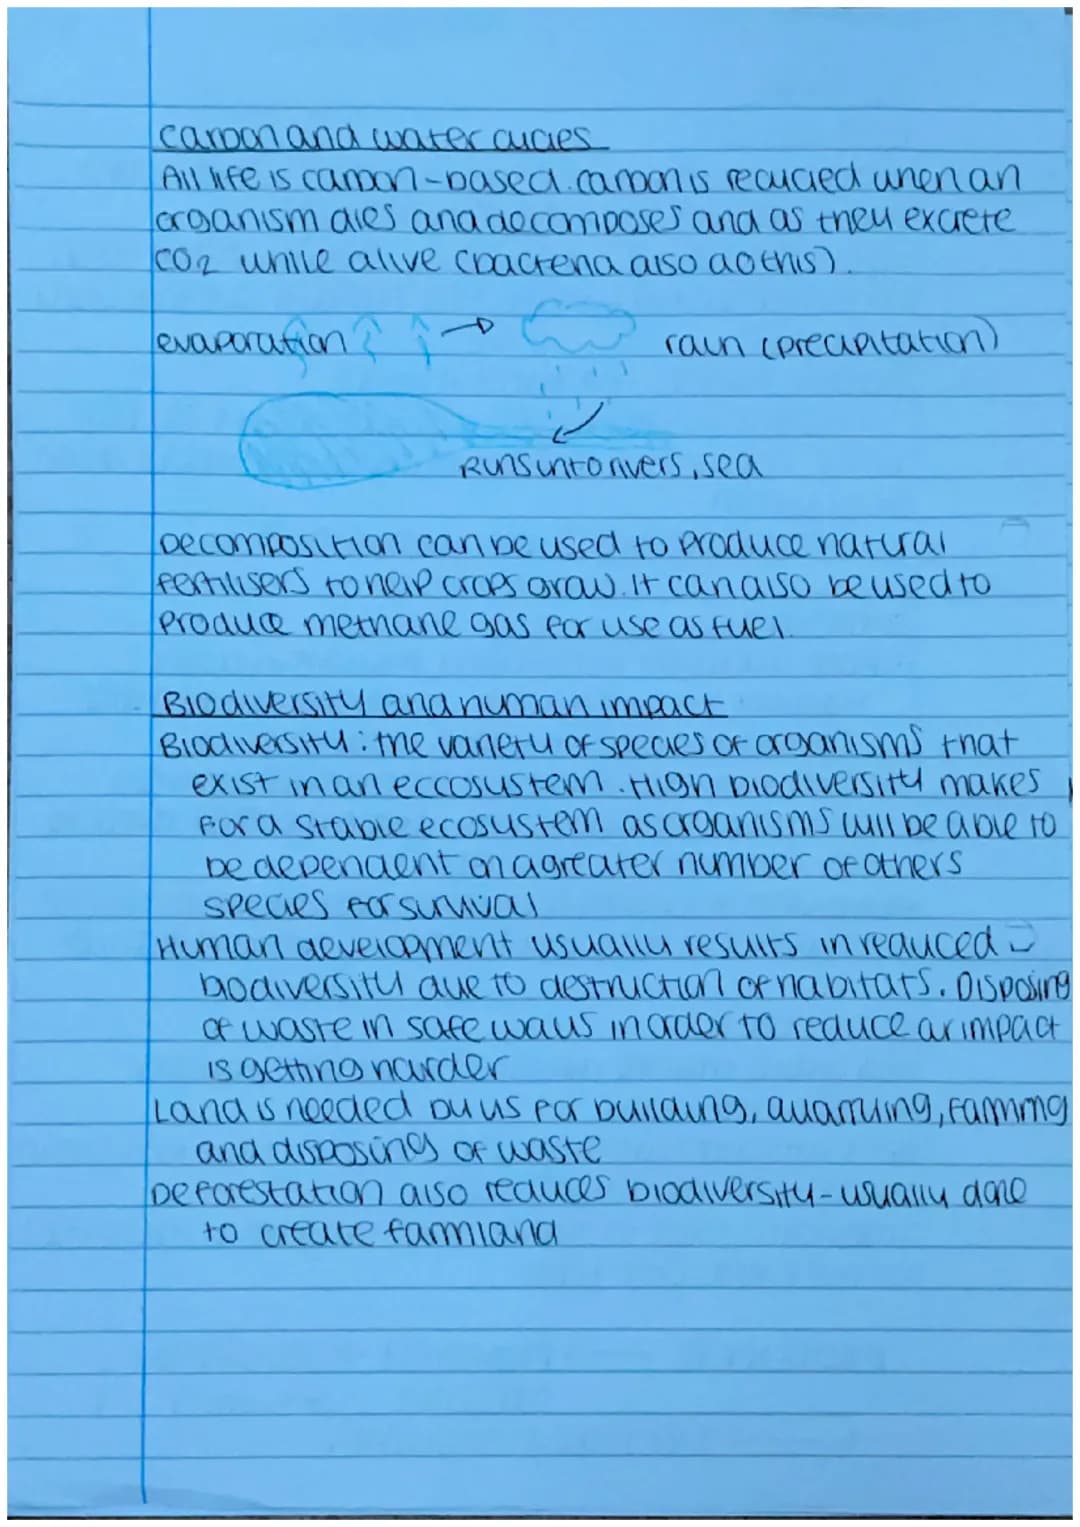 Carbon and water cycles
All life is carbon-based. carbon is recycled when an
organism dies and decomposes and as they excrete
CO2 while alive (bacteria also do this).
evaporation → rain (precipitation)
Runs into rivers, sea
Decomposition can be used to produce natural
fertilisers to help crops grow. It can also be used to
produce methane gas for use as fuel.
Biodiversity and human impact
Biodiversity: the variety of species of organisms that
exist in an eccosystem. High biodiversity makes
for a stable ecosystem as organisms will be able to
be dependent on a greater number of others
species for survival
Human development usually results in reduced
biodiversity due to destruction of habitats. Disposing
of waste in safe ways in order to reduce ar impact
is getting harder
Land is needed by us for building, quarrying, farming
and disposing of waste
Deforestation also reduces biodiversity - usually done
to create farmland